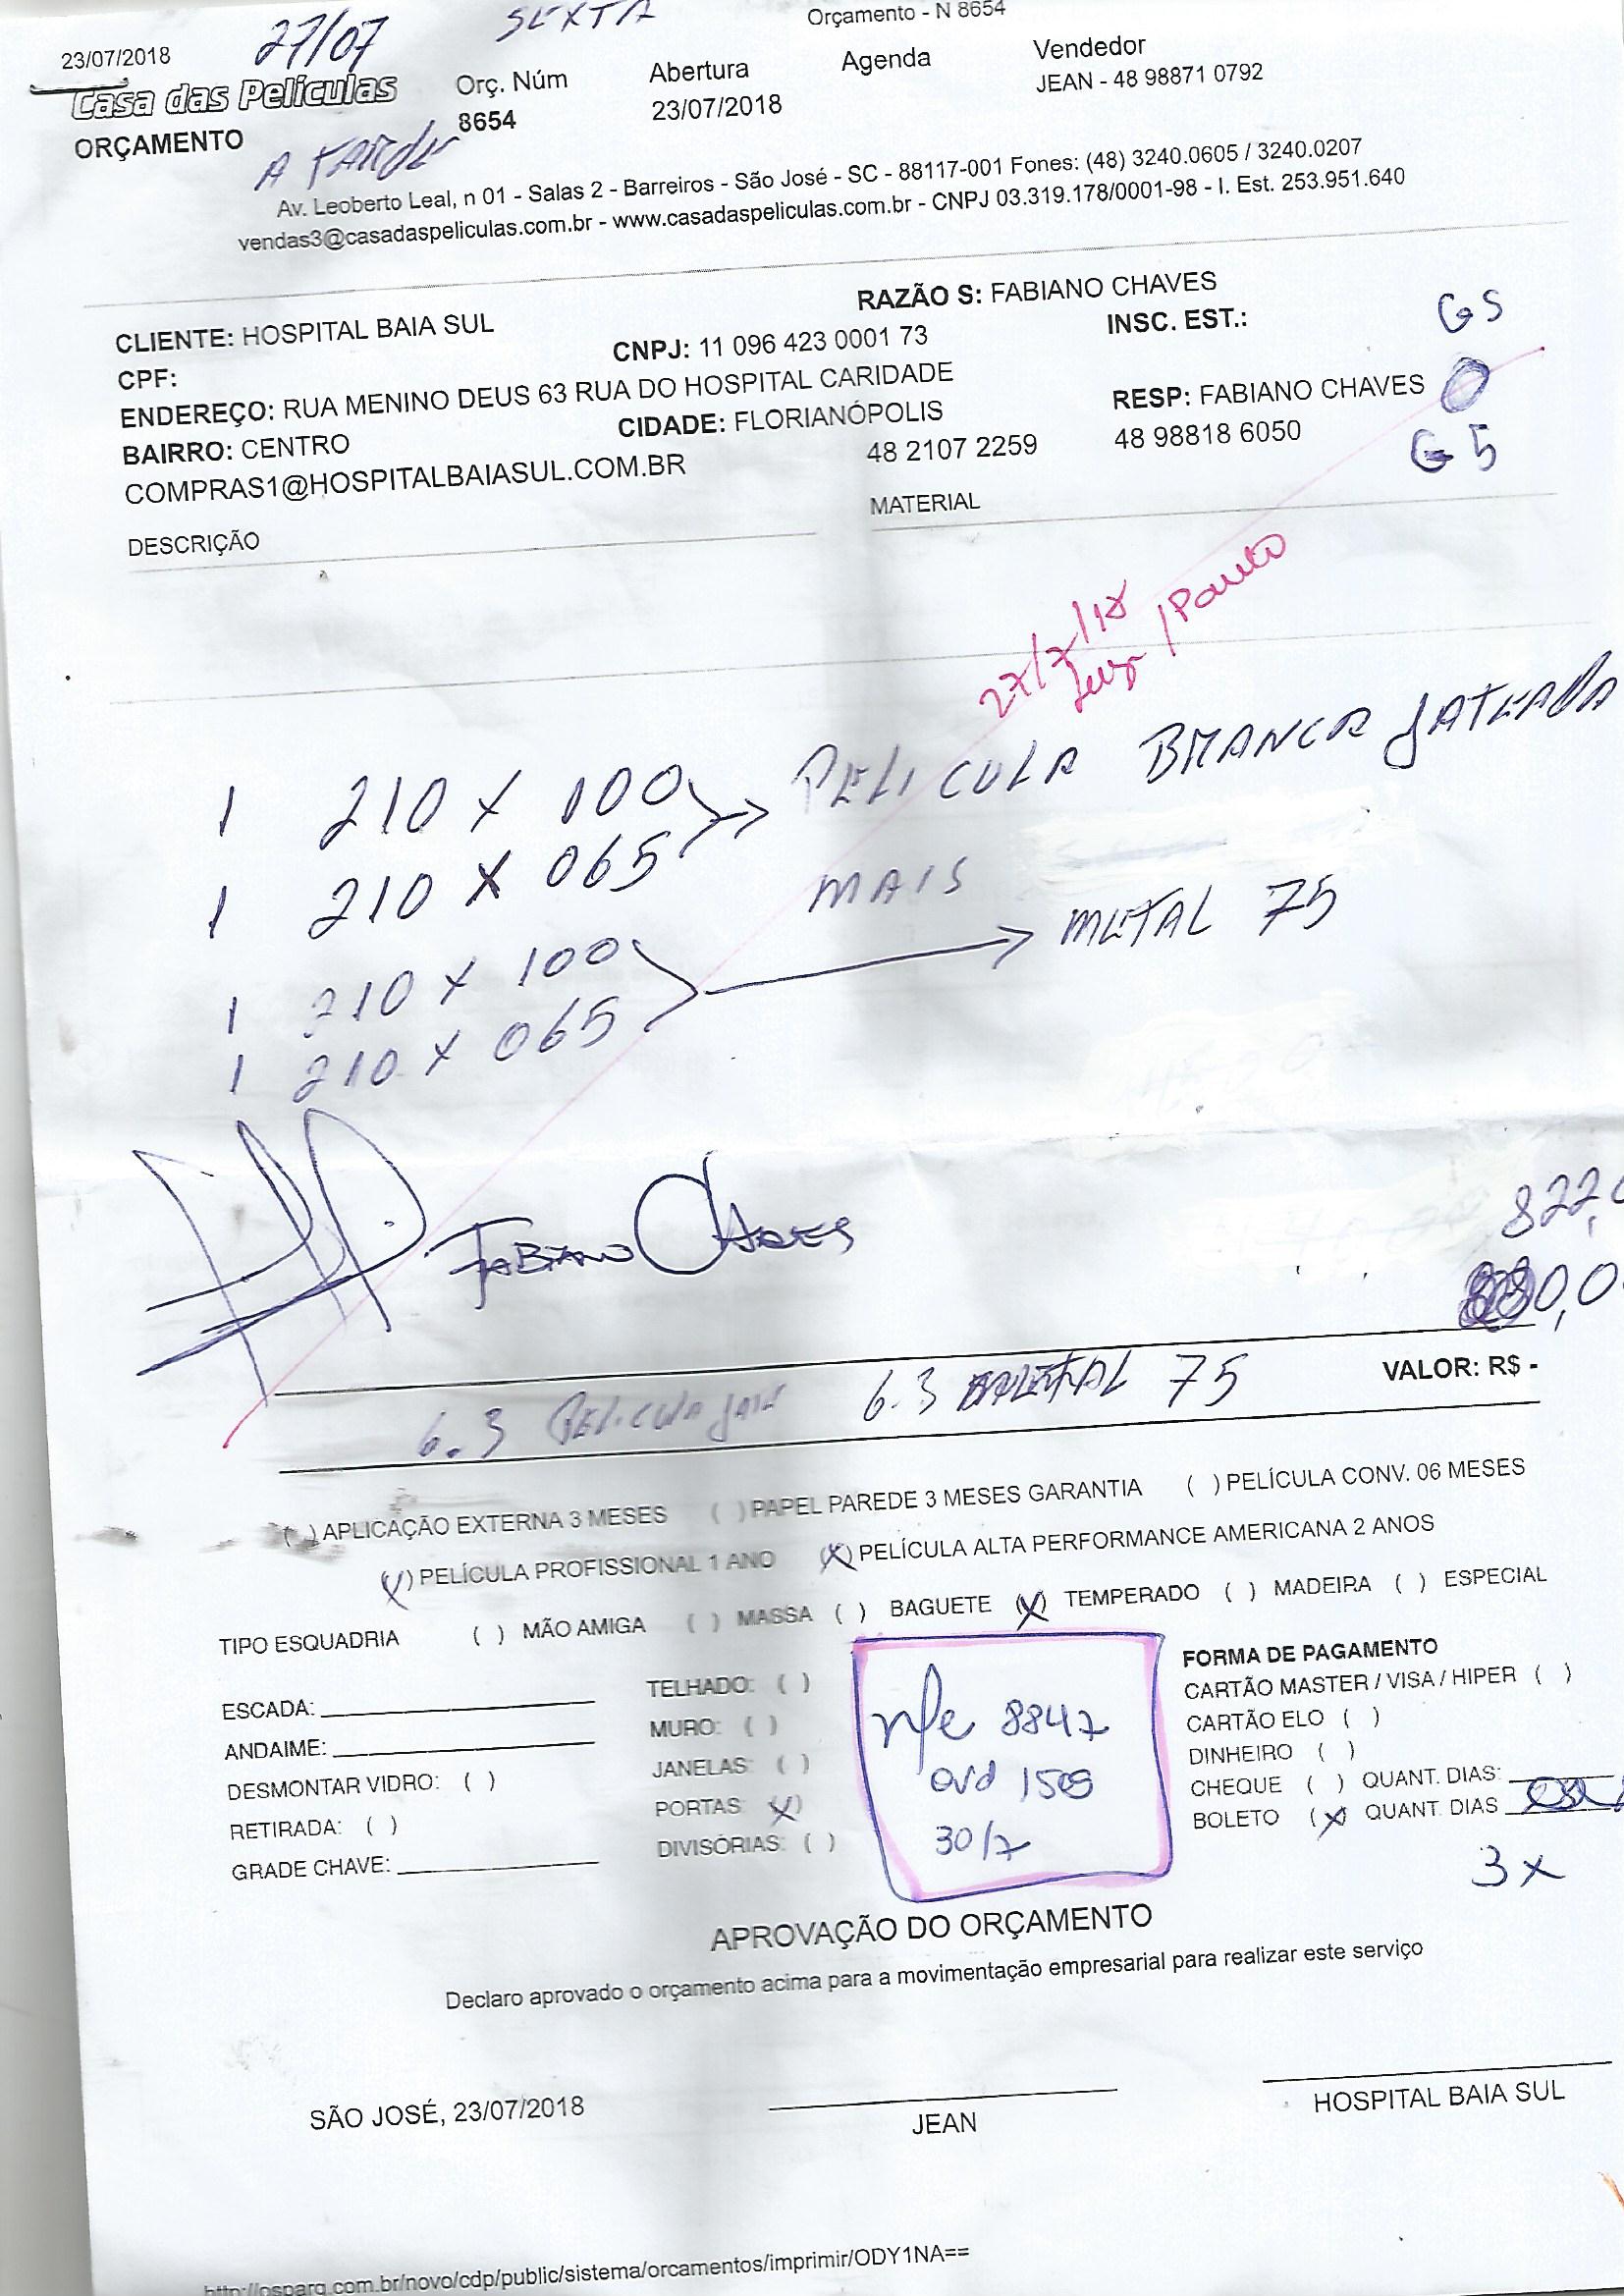 Orçamento - N 8654
23/07/2018 27/07 SEXTA
Casa das Películas Orç. Núm Abertura Agenda Vendedor
ORÇAMENTO 8654 23/07/2018 JEAN - 48 98871 0792
A TARDE
Av. Leoberto Leal, n 01 - Salas 2 - Barreiros - São José - SC - 88117-001 Fones: (48) 3240.0605 / 3240.0207
vendas3@casadaspeliculas.com.br - www.casadaspeliculas.com.br - CNPJ 03.319.178/0001-98 - I. Est. 253.951.640
CLIENTE: HOSPITAL BAIA SUL RAZÃO S: FABIANO CHAVES
CPF: CNPJ: 11 096 423 0001 73 INSC. EST.: G5
ENDEREÇO: RUA MENINO DEUS 63 RUA DO HOSPITAL CARIDADE
BAIRRO: CENTRO CIDADE: FLORIANÓPOLIS RESP: FABIANO CHAVES 0
COMPRAS1@HOSPITALBAIASUL.COM.BR 48 2107 2259 48 98818 6050 G5
DESCRIÇÃO MATERIAL
27/7/18
/Paulo
1 210 X 100 PELICULA BRANCA JATEADA
1 210 X 065
MAIS
1 210 X 100 METAL 75
1 210 X 065
FABIANO CHAVES
822,
VALOR: R$ -
6.3 PELICULA JATE 6.3 METAL 75
( ) APLICAÇÃO EXTERNA 3 MESES ( ) PAPEL PAREDE 3 MESES GARANTIA ( ) PELÍCULA CONV. 06 MESES
(X) PELÍCULA PROFISSIONAL 1 ANO (X) PELÍCULA ALTA PERFORMANCE AMERICANA 2 ANOS
TIPO ESQUADRIA ( ) MÃO AMIGA ( ) MASSA ( ) BAGUETE (X) TEMPERADO ( ) MADEIRA ( ) ESPECIAL
ESCADA: TELHADO: ( )
ANDAIME: MURO: ( )
DESMONTAR VIDRO: ( ) JANELAS: ( )
RETIRADA: ( ) PORTAS: (X)
GRADE CHAVE: DIVISÓRIAS: ( )
nfe 8847
ord 1509
30/7
FORMA DE PAGAMENTO
CARTÃO MASTER / VISA / HIPER ( )
CARTÃO ELO ( )
DINHEIRO ( )
CHEQUE ( ) QUANT. DIAS:
BOLETO (X) QUANT. DIAS
3x
APROVAÇÃO DO ORÇAMENTO
Declaro aprovado o orçamento acima para a movimentação empresarial para realizar este serviço
SÃO JOSÉ, 23/07/2018 JEAN HOSPITAL BAIA SUL
http://osparq.com.br/novo/cdp/public/sistema/orcamentos/imprimir/ODY1NA==